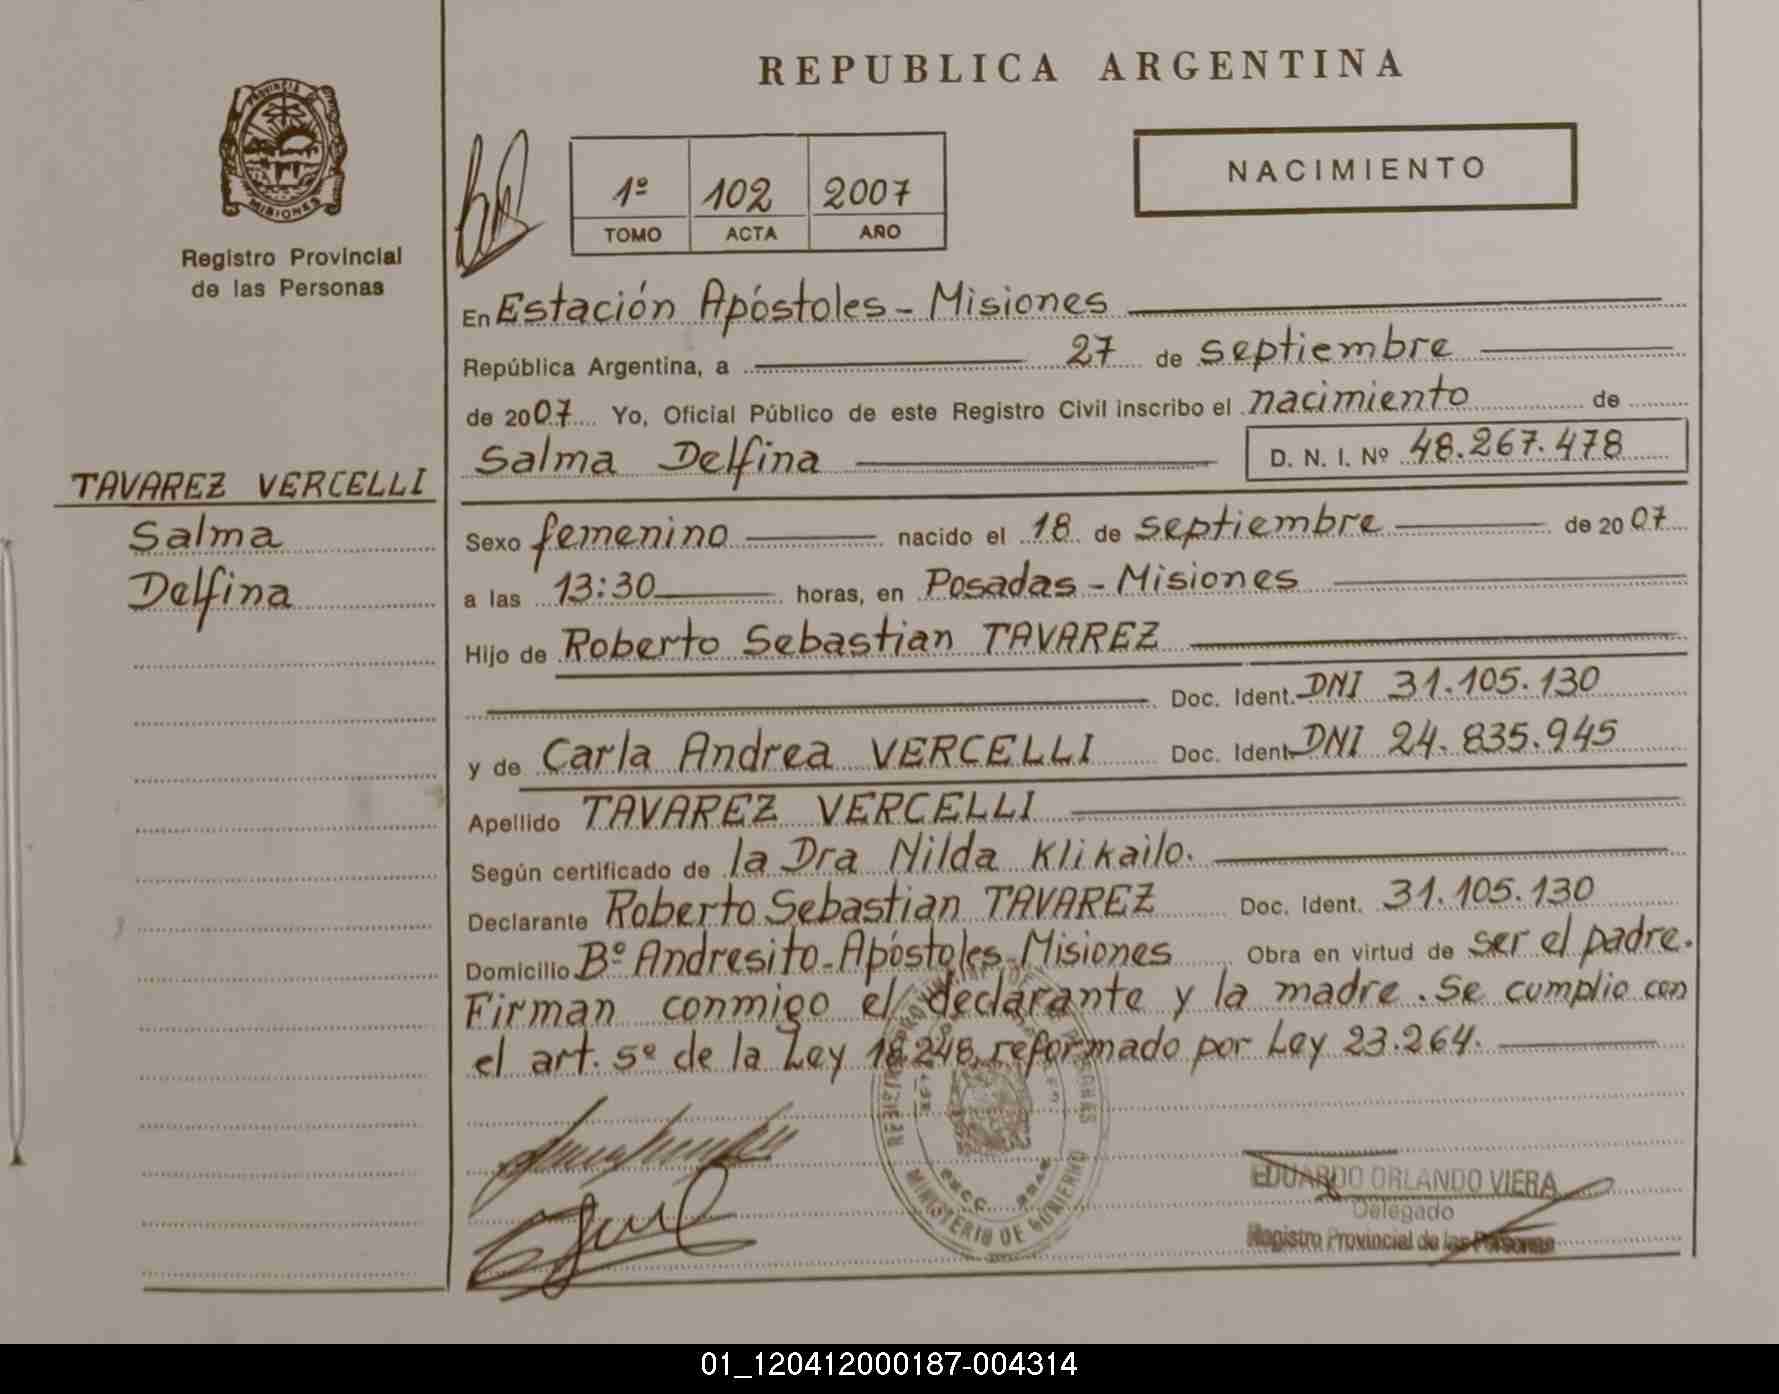 REPUBLICA ARGENTINA
PROVINCIA DE
MISIONES
Registro Provincial
de las Personas
1º 102 2007
TOMO ACTA AÑO
NACIMIENTO
En Estación Apóstoles - Misiones
República Argentina, a 27 de septiembre
de 2007 Yo, Oficial Público de este Registro Civil inscribo el nacimiento de
Salma Delfina D. N. I. Nº 48.267.478
TAVAREZ VERCELLI
Salma
Delfina
Sexo femenino nacido el 18 de septiembre de 2007
a las 13:30 horas, en Posadas - Misiones
Hijo de Roberto Sebastian TAVAREZ
Doc. Ident. DNI 31.105.130
y de Carla Andrea VERCELLI Doc. Ident. DNI 24.835.945
Apellido TAVAREZ VERCELLI
Según certificado de la Dra Nilda Klikailo.
Declarante Roberto Sebastian TAVAREZ Doc. Ident. 31.105.130
Domicilio Bº Andresito - Apóstoles - Misiones Obra en virtud de ser el padre.
Firman conmigo el declarante y la madre. Se cumplio con
el art. 5º de la Ley 18248, reformado por Ley 23.264.
REGISTRO PROVINCIAL DE LAS PERSONAS
MINISTERIO DE GOBIERNO
EDUARDO ORLANDO VIERA
Delegado
Registro Provincial de las Personas
01_120412000187-004314